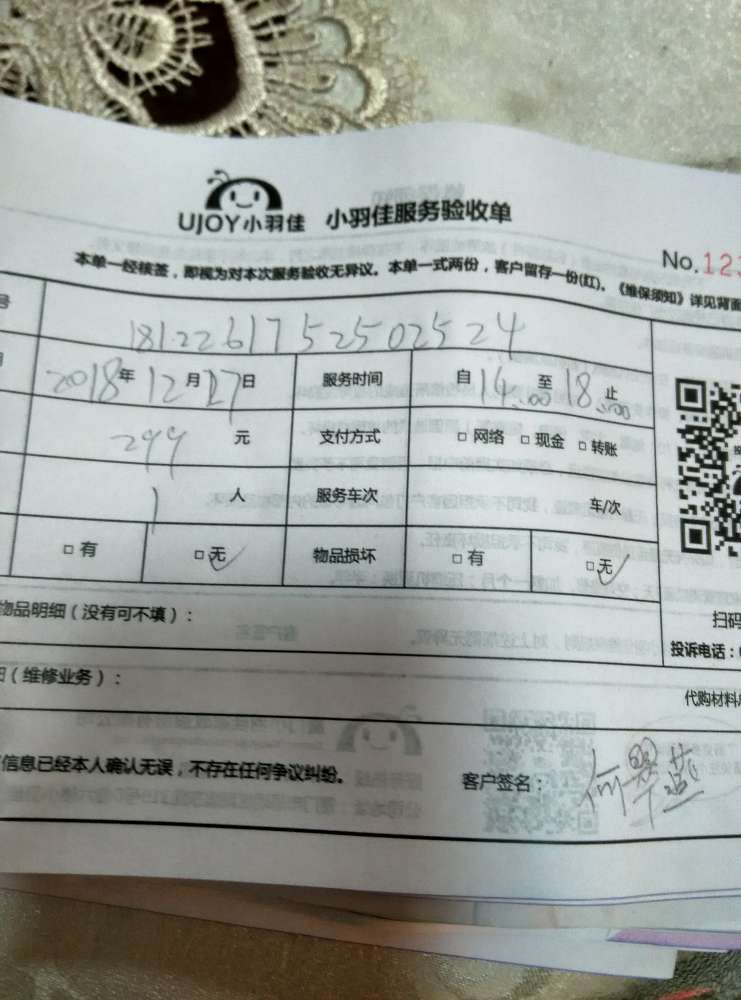 UJOY小羽佳 小羽佳服务验收单
No.123
本单一经核签，即视为对本次服务验收无异议。本单一式两份，客户留存一份(红)。《维保须知》详见背面
号 1812261752502524
2018年12月27日 服务时间 自14:00至18:00止
299元 支付方式 □网络 □现金 □转账
1人 服务车次 车/次
□有 □无 物品损坏 □有 □无
扫码
物品明细（没有可不填）：
投诉电话：
（维修业务）：
代购材料
信息已经本人确认无误，不存在任何争议纠纷。 客户签名：何